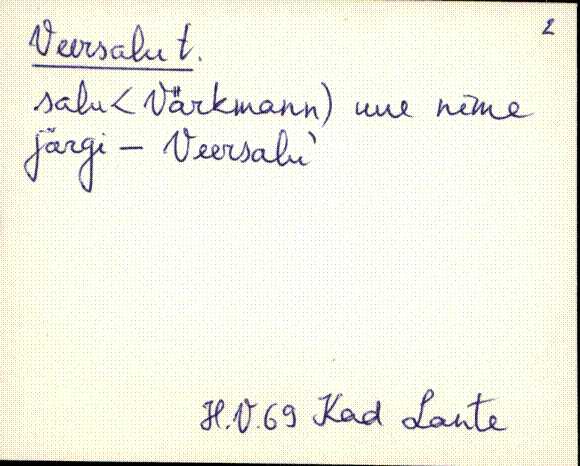 2
Veersalu t.
salu < Värkmann) uue nime
järgi – Veersalu`
H.V.69 Kad Lante